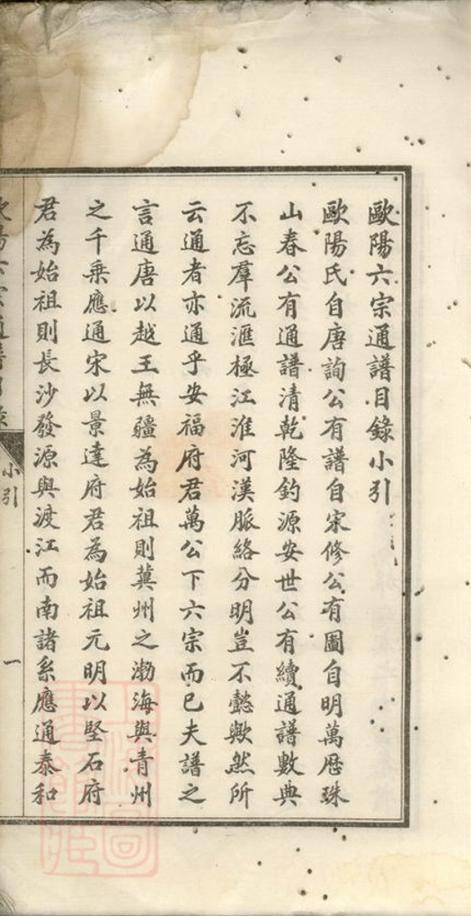 歐陽六宗通譜目錄小引
歐陽氏自唐詢公有譜自宋修公有圖自明萬歷珠
山春公有通譜清乾隆釣源安世公有續通譜數典
不忘羣流滙極江淮河漢脈絡分明豈不懿歟然所
云通者亦通乎安福府君萬公下六宗而已夫譜之
言通唐以越王無疆為始祖則冀州之渤海與青州
之千乘應通宋以景達府君為始祖元明以堅石府
君為始祖則長沙發源與渡江而南諸系應通泰和
小引
一